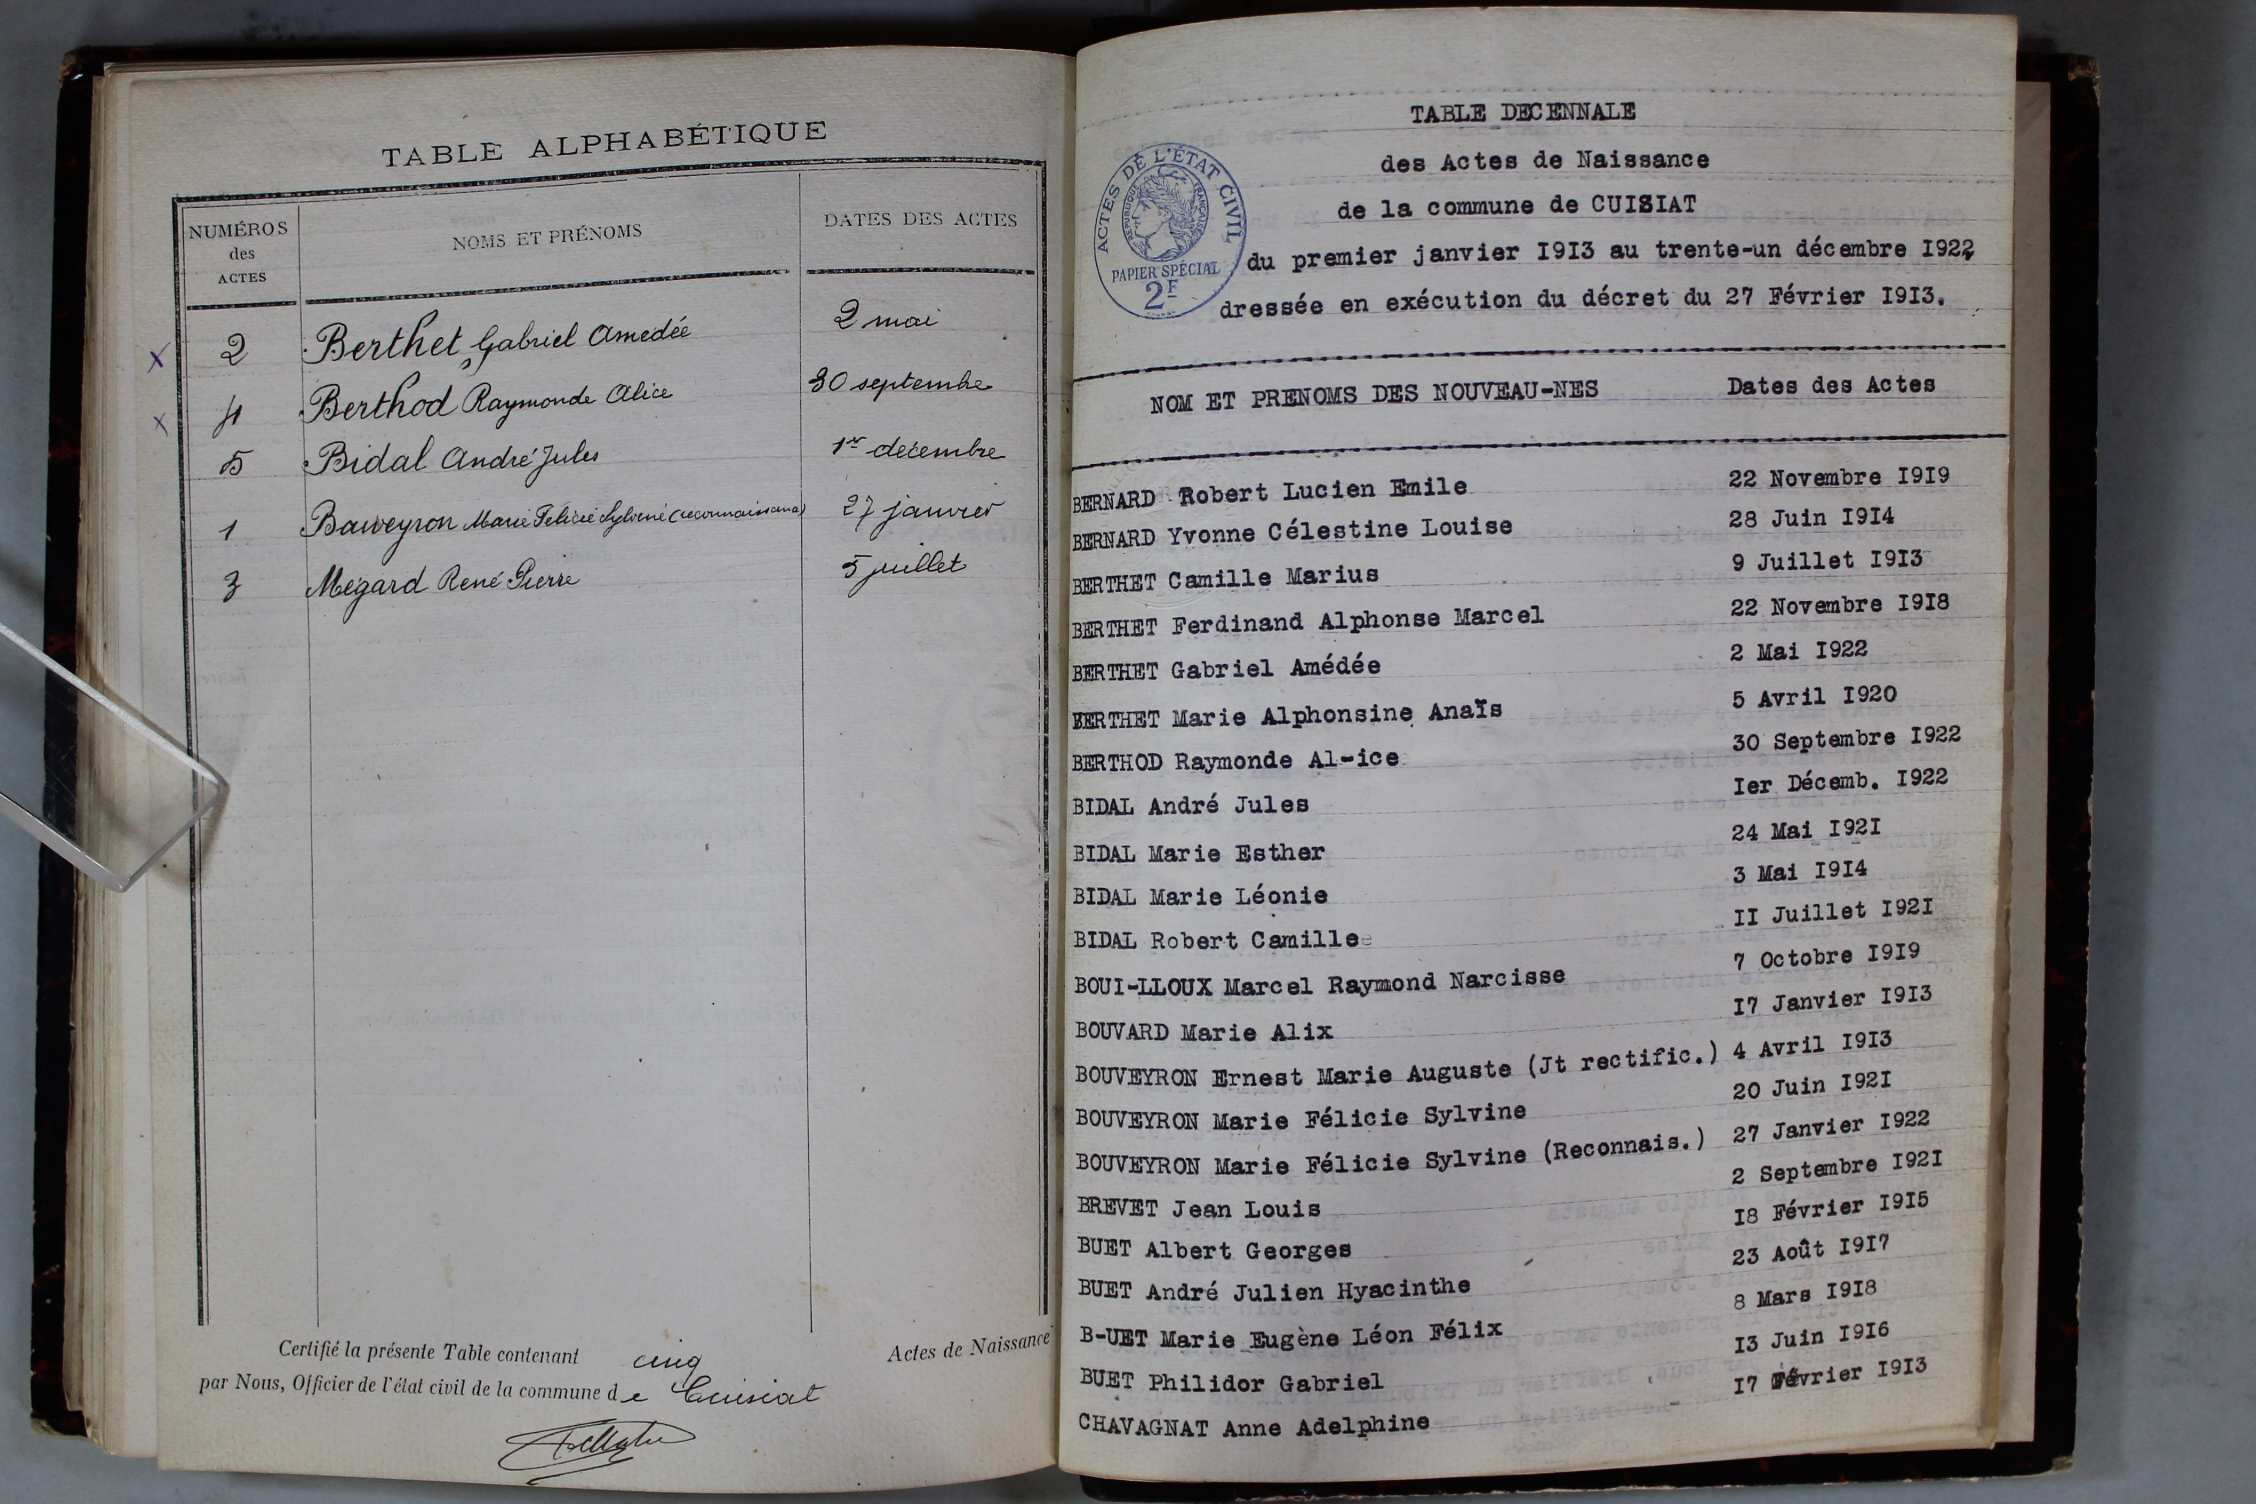 TABLE ALPHABÉTIQUE
NUMÉROS
des
ACTES
NOMS ET PRÉNOMS
DATES DES ACTES
x 2 Berthet Gabriel Amédée 2 mai
x 4 Berthod Raymonde Alice 30 septembre
5 Bidal André Jules 1er décembre
1 Bouveyron Marie Félicie Sylvine (reconnaissance) 27 janvier
3 Mégard René Pierre 5 juillet
Certifié la présente Table contenant cinq Actes de Naissance
par Nous, Officier de l'état civil de la commune de Cuisiat
ACTES DE L'ÉTAT CIVIL
RÉPUBLIQUE FRANÇAISE
PAPIER SPÉCIAL
2F
TABLE DECENNALE
des Actes de Naissance
de la commune de CUISIAT
du premier janvier I9I3 au trente-un décembre I922
dressée en exécution du décret du 27 Février I9I3.
NOM ET PRENOMS DES NOUVEAU-NES Dates des Actes
BERNARD Robert Lucien Emile 22 Novembre I9I9
BERNARD Yvonne Célestine Louise 28 Juin I9I4
BERTHET Camille Marius 9 Juillet I9I3
BERTHET Ferdinand Alphonse Marcel 22 Novembre I9I8
BERTHET Gabriel Amédée 2 Mai I922
BERTHET Marie Alphonsine Anaïs 5 Avril I920
BERTHOD Raymonde Al-ice 30 Septembre I922
BIDAL André Jules Ier Décemb. I922
BIDAL Marie Esther 24 Mai I92I
BIDAL Marie Léonie 3 Mai I9I4
BIDAL Robert Camillee II Juillet I92I
BOUI-LLOUX Marcel Raymond Narcisse 7 Octobre I9I9
BOUVARD Marie Alix I7 Janvier I9I3
BOUVEYRON Ernest Marie Auguste (Jt rectific.) 4 Avril I9I3
BOUVEYRON Marie Félicie Sylvine 20 Juin I92I
BOUVEYRON Marie Félicie Sylvine (Reconnais.) 27 Janvier I922
BREVET Jean Louis 2 Septembre I92I
BUET Albert Georges I8 Février I9I5
BUET André Julien Hyacinthe 23 Août I9I7
B-UET Marie Eugène Léon Félix 8 Mars I9I8
BUET Philidor Gabriel I3 Juin I9I6
CHAVAGNAT Anne Adelphine I7 Février I9I3